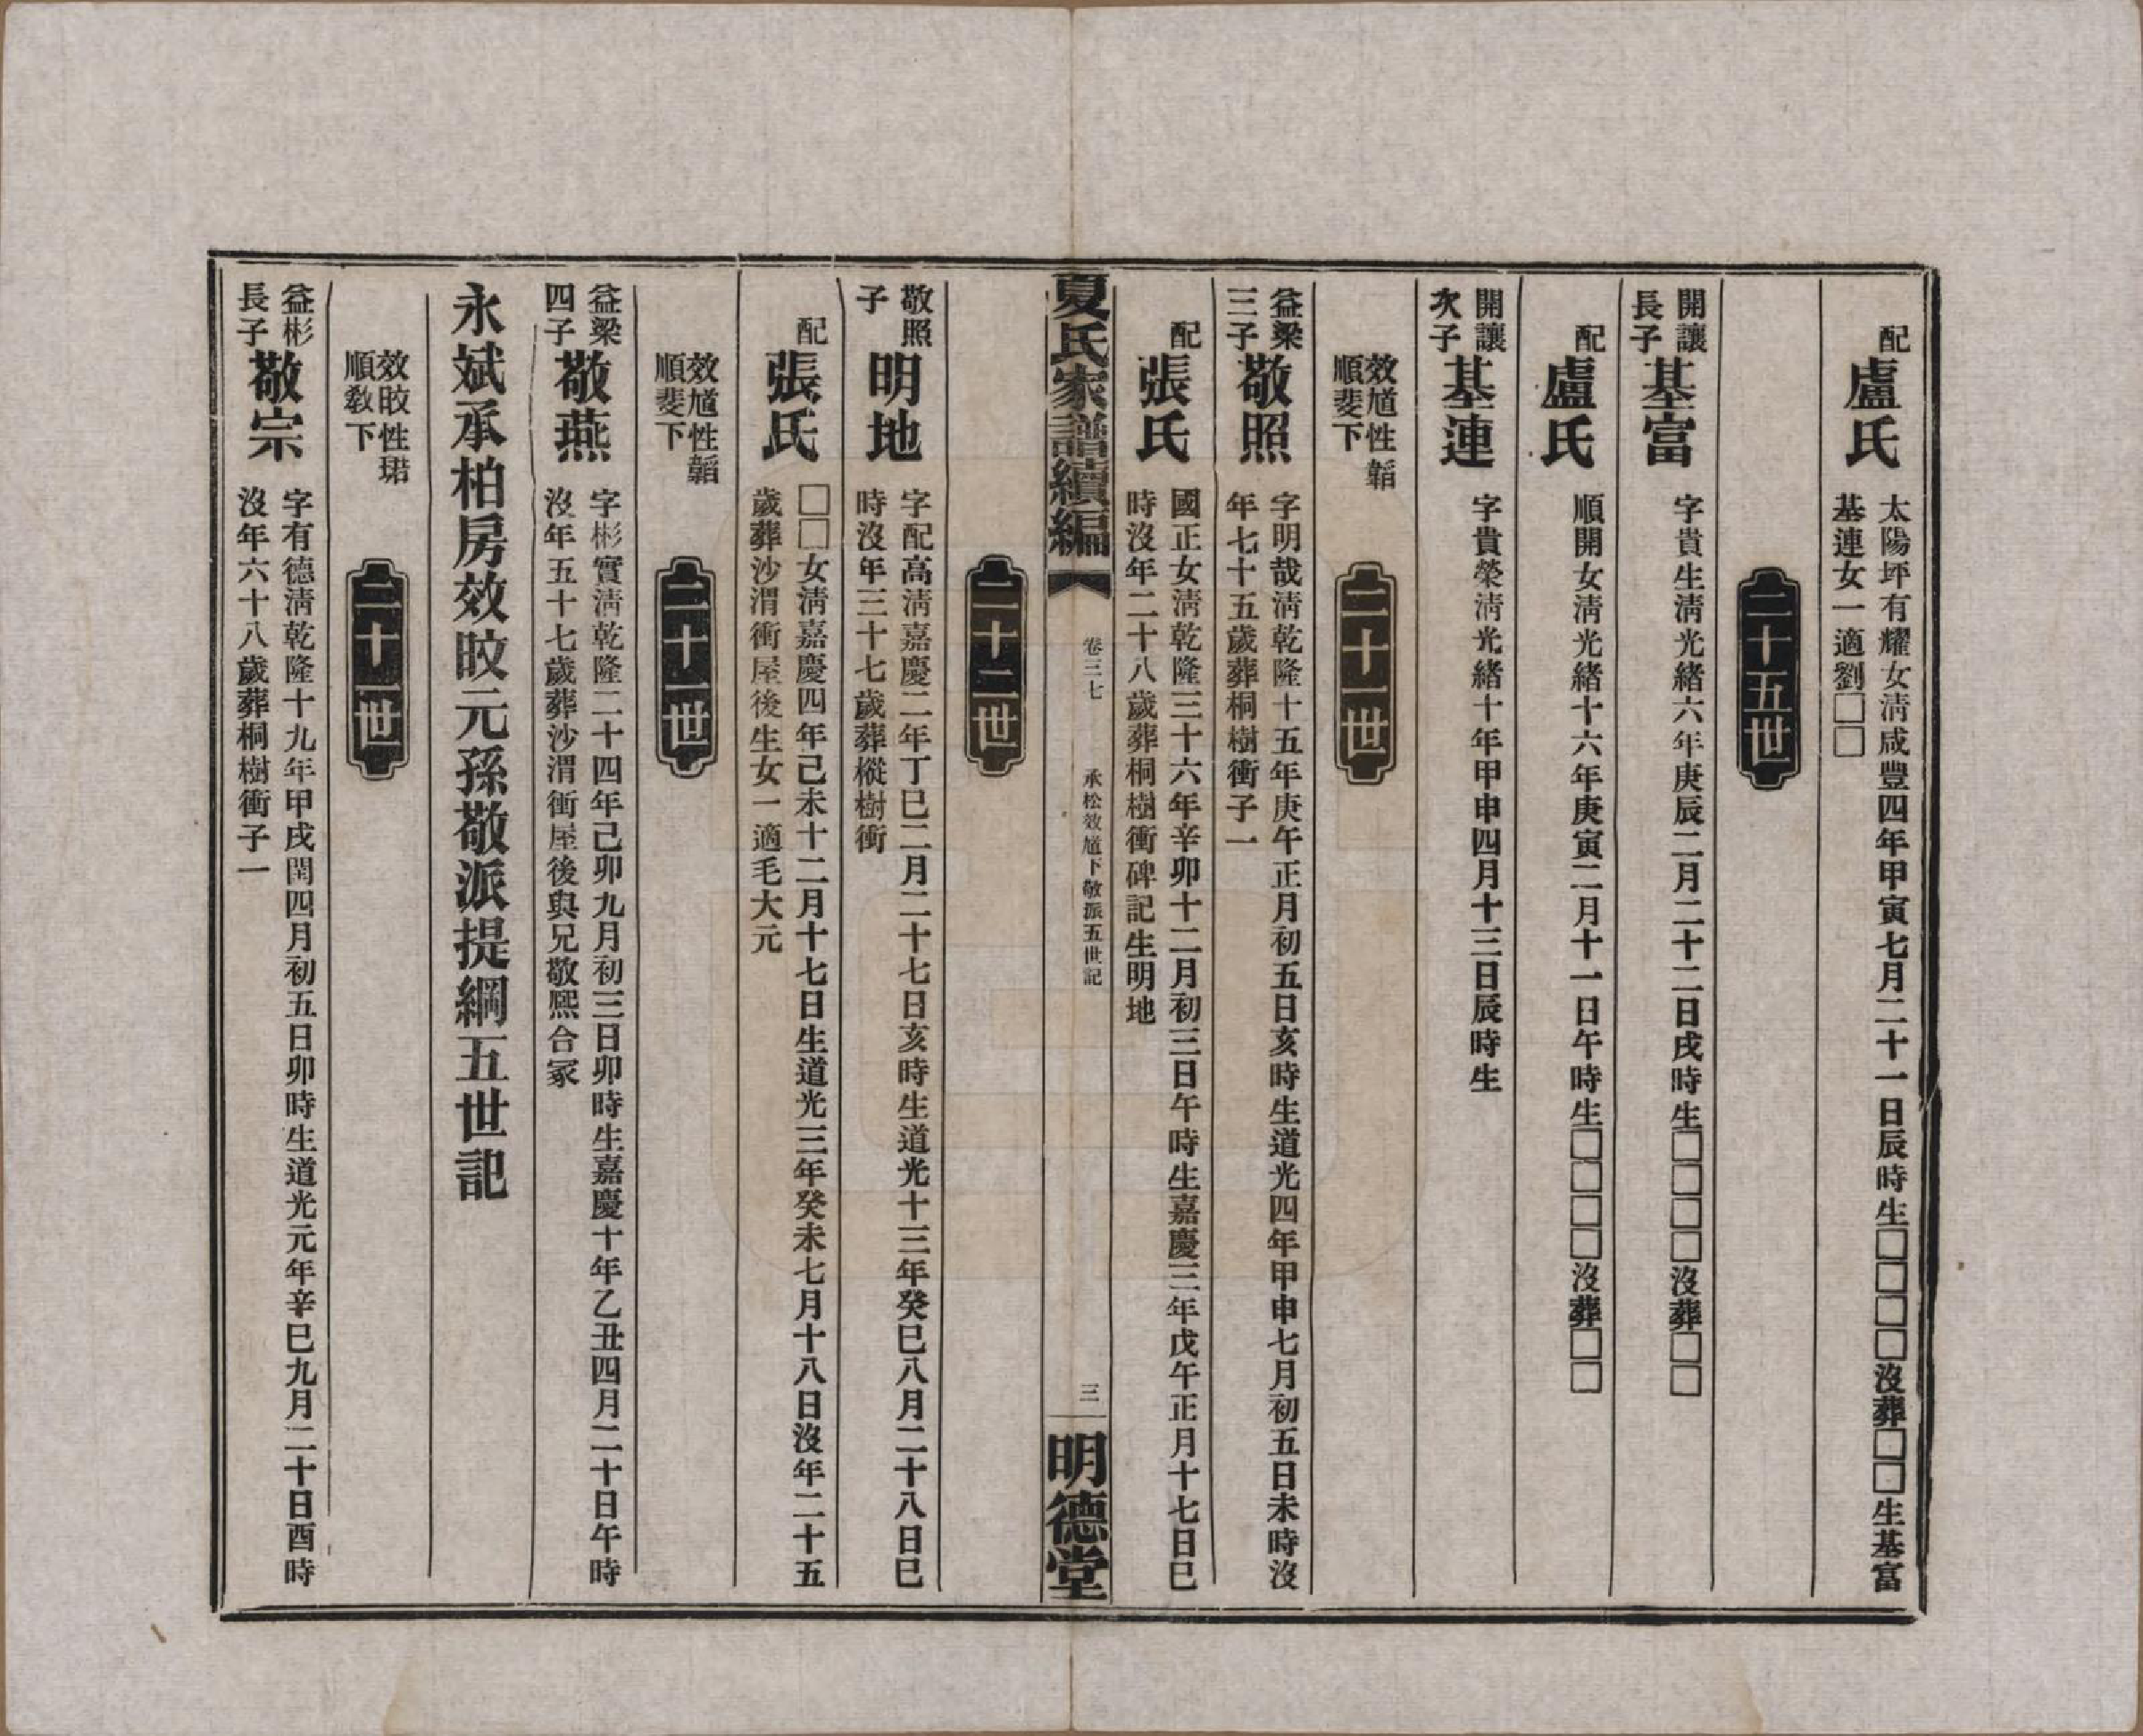 配
盧氏
太陽坪有耀女淸咸豐四年甲寅七月二十一日辰時生□□□□沒葬□□生基富
基連女一適劉□□
二十五世
開讓
長子
基富
字貴生淸光緒六年庚辰二月二十二日戌時生□□□□沒葬□□
配
盧氏
順開女淸光緒十六年庚寅二月十一日午時生□□□□沒葬□□
開讓
次子
基連
字貴榮淸光緒十年甲申四月十三日辰時生
效尵性韜
順斐下
二十一世
益梁
三子
敬照
字明哉淸乾隆十五年庚午正月初五日亥時生道光四年甲申七月初五日未時沒
年七十五歲葬桐樹衝子一
配
張氏
國正女淸乾隆三十六年辛卯十二月初三日午時生嘉慶三年戊午正月十七日巳
時沒年二十八歲葬桐樹衝碑記生明地
夏氏家譜續編
卷三七
承松效尵下敬派五世記
三
明德堂
二十二世
敬照
子
明地
字配高淸嘉慶二年丁巳二月二十七日亥時生道光十三年癸巳八月二十八日巳
時沒年三十七歲葬樅樹衝
配
張氏
□□女淸嘉慶四年己未十二月十七日生道光三年癸未七月十八日沒年二十五
歲葬沙渭衝屋後生女一適毛大元
效尵性韜
順斐下
二十一世
益梁
四子
敬燕
字彬實淸乾隆二十四年己卯九月初三日卯時生嘉慶十年乙丑四月二十日午時
沒年五十七歲葬沙渭衝屋後與兄敬熙合冢
永斌承柏房效旼元孫敬派提綱五世記
效旼性珺
順敎下
二十一世
益彬
長子
敬宗
字有德淸乾隆十九年甲戌閏四月初五日卯時生道光元年辛巳九月二十日酉時
沒年六十八歲葬桐樹衝子一